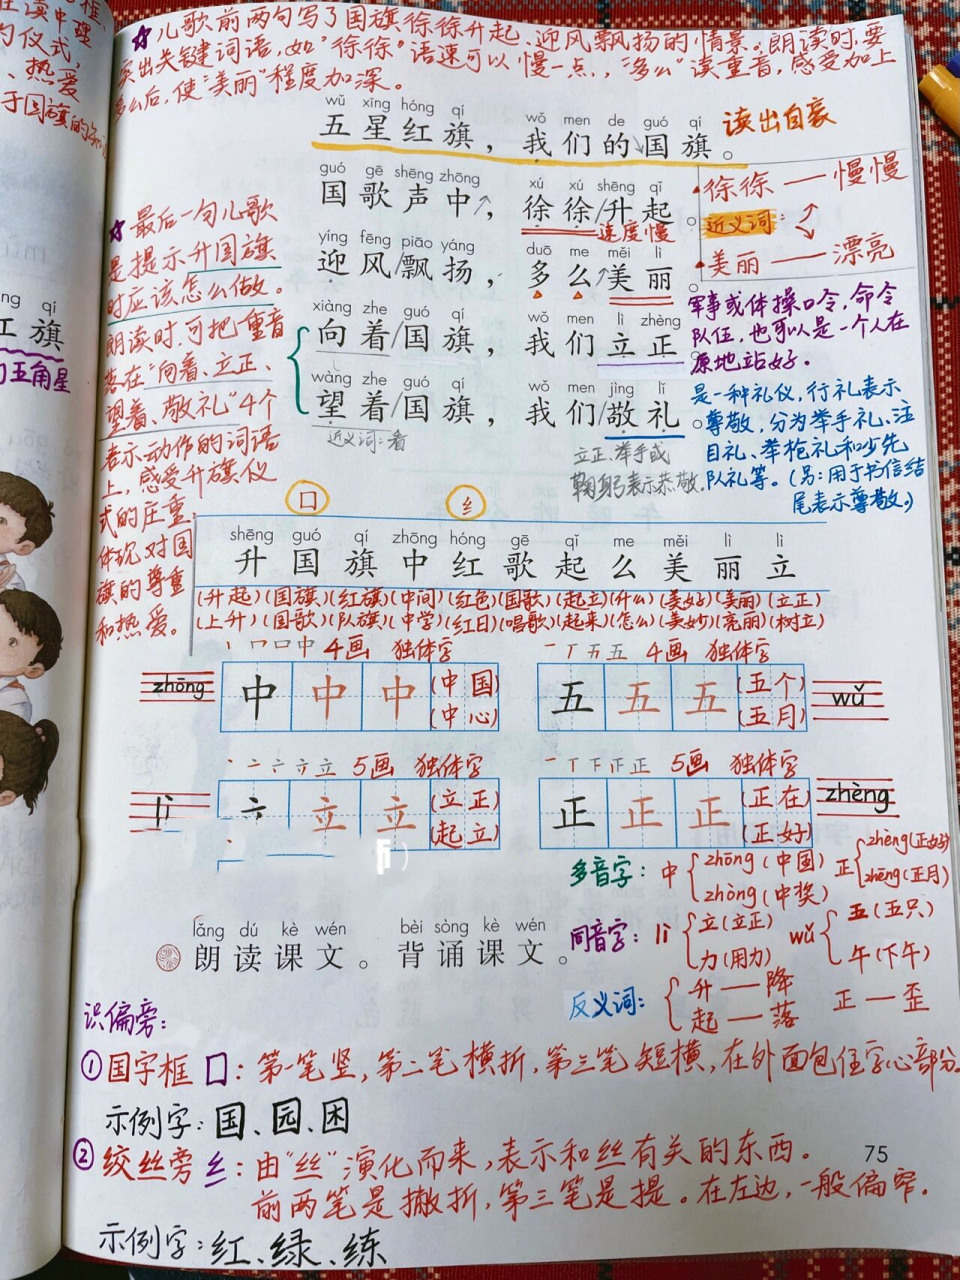 ☆儿歌前两句写了国旗徐徐升起、迎风飘扬的情景。朗读时,要
突出关键词语,如"徐徐"语速可以慢一点,,"多么"读重音,感受加上
多么后,使"美丽"程度加深。
在读中理
的仪式,
、热爱
于国旗的
wǔ xīng hóng qí wǒ men de guó qí
五星红旗,我们的国旗。
读出自豪
guó gē shēng zhōng xú xú shēng qǐ
国歌声中,徐徐/升起。
速度慢
yíng fēng piāo yáng duō me měi lì
迎风/飘扬,多么/美丽。
xiàng zhe guó qí wǒ men lì zhèng
向着/国旗,我们立正
wàng zhe guó qí wǒ men jìng lǐ
望着/国旗,我们/敬礼。
近义词:看
立正、举手或
鞠躬表示恭敬。
徐徐——慢慢
近义词:
美丽——漂亮
军事或体操口令,命令
队伍,也可以是一个人在
原地站好。
是一种礼仪,行礼表示
尊敬,分为举手礼、注
目礼、举枪礼和少先
队礼等。(另:用于书信结
尾表示尊敬。)
☆最后一句儿歌
是提示升国旗
时应该怎么做。
朗读时,可把重音
落在"向着、立正、
望着、敬礼"4个
表示动作的词语
上,感受升旗仪
式的庄重,
体现对国
旗的尊重
和热爱。
ng qí
红旗
五角星
口 纟
shēng guó qí zhōng hóng gē qǐ me měi lì lì
升国旗中红歌起么美丽立
(升起)(国旗)(红旗)(中间)(红色)(国歌)(起立)(什么)(美好)(美丽)(立正)
(上升)(国歌)(队旗)(中学)(红日)(唱歌)(起来)(怎么)(美妙)(亮丽)(树立)
丨 冖 口 中 4画 独体字
zhōng 中 中 中 (中国)
(中心)
一 丅 五 五 4画 独体字
五 五 五 (五个) wǔ
(五月)
丶 亠 六 立 立 5画 独体字
lì 立 立 (立正)
(起立)
一 丅 下 正 正 5画 独体字
正 正 正 (正在) zhèng
(正好)
多音字: 中 zhōng(中国)
zhòng(中奖)
正 zhèng(正好)
zhēng(正月)
同音字: lì 立(立正)
力(用力)
wǔ 五(五只)
午(下午)
反义词: 升——降
起——落
正—歪
lǎng dú kè wén bèi sòng kè wén
朗读课文。背诵课文。
识偏旁:
①国字框 囗:第一笔竖,第二笔横折,第三笔短横,在外面包住字心部分。
示例字:国、园、困
②绞丝旁 纟:由"丝"演化而来,表示和丝有关的东西。
前两笔是撇折,第三笔是提。在左边,一般偏窄。
示例字:红、绿、练
75